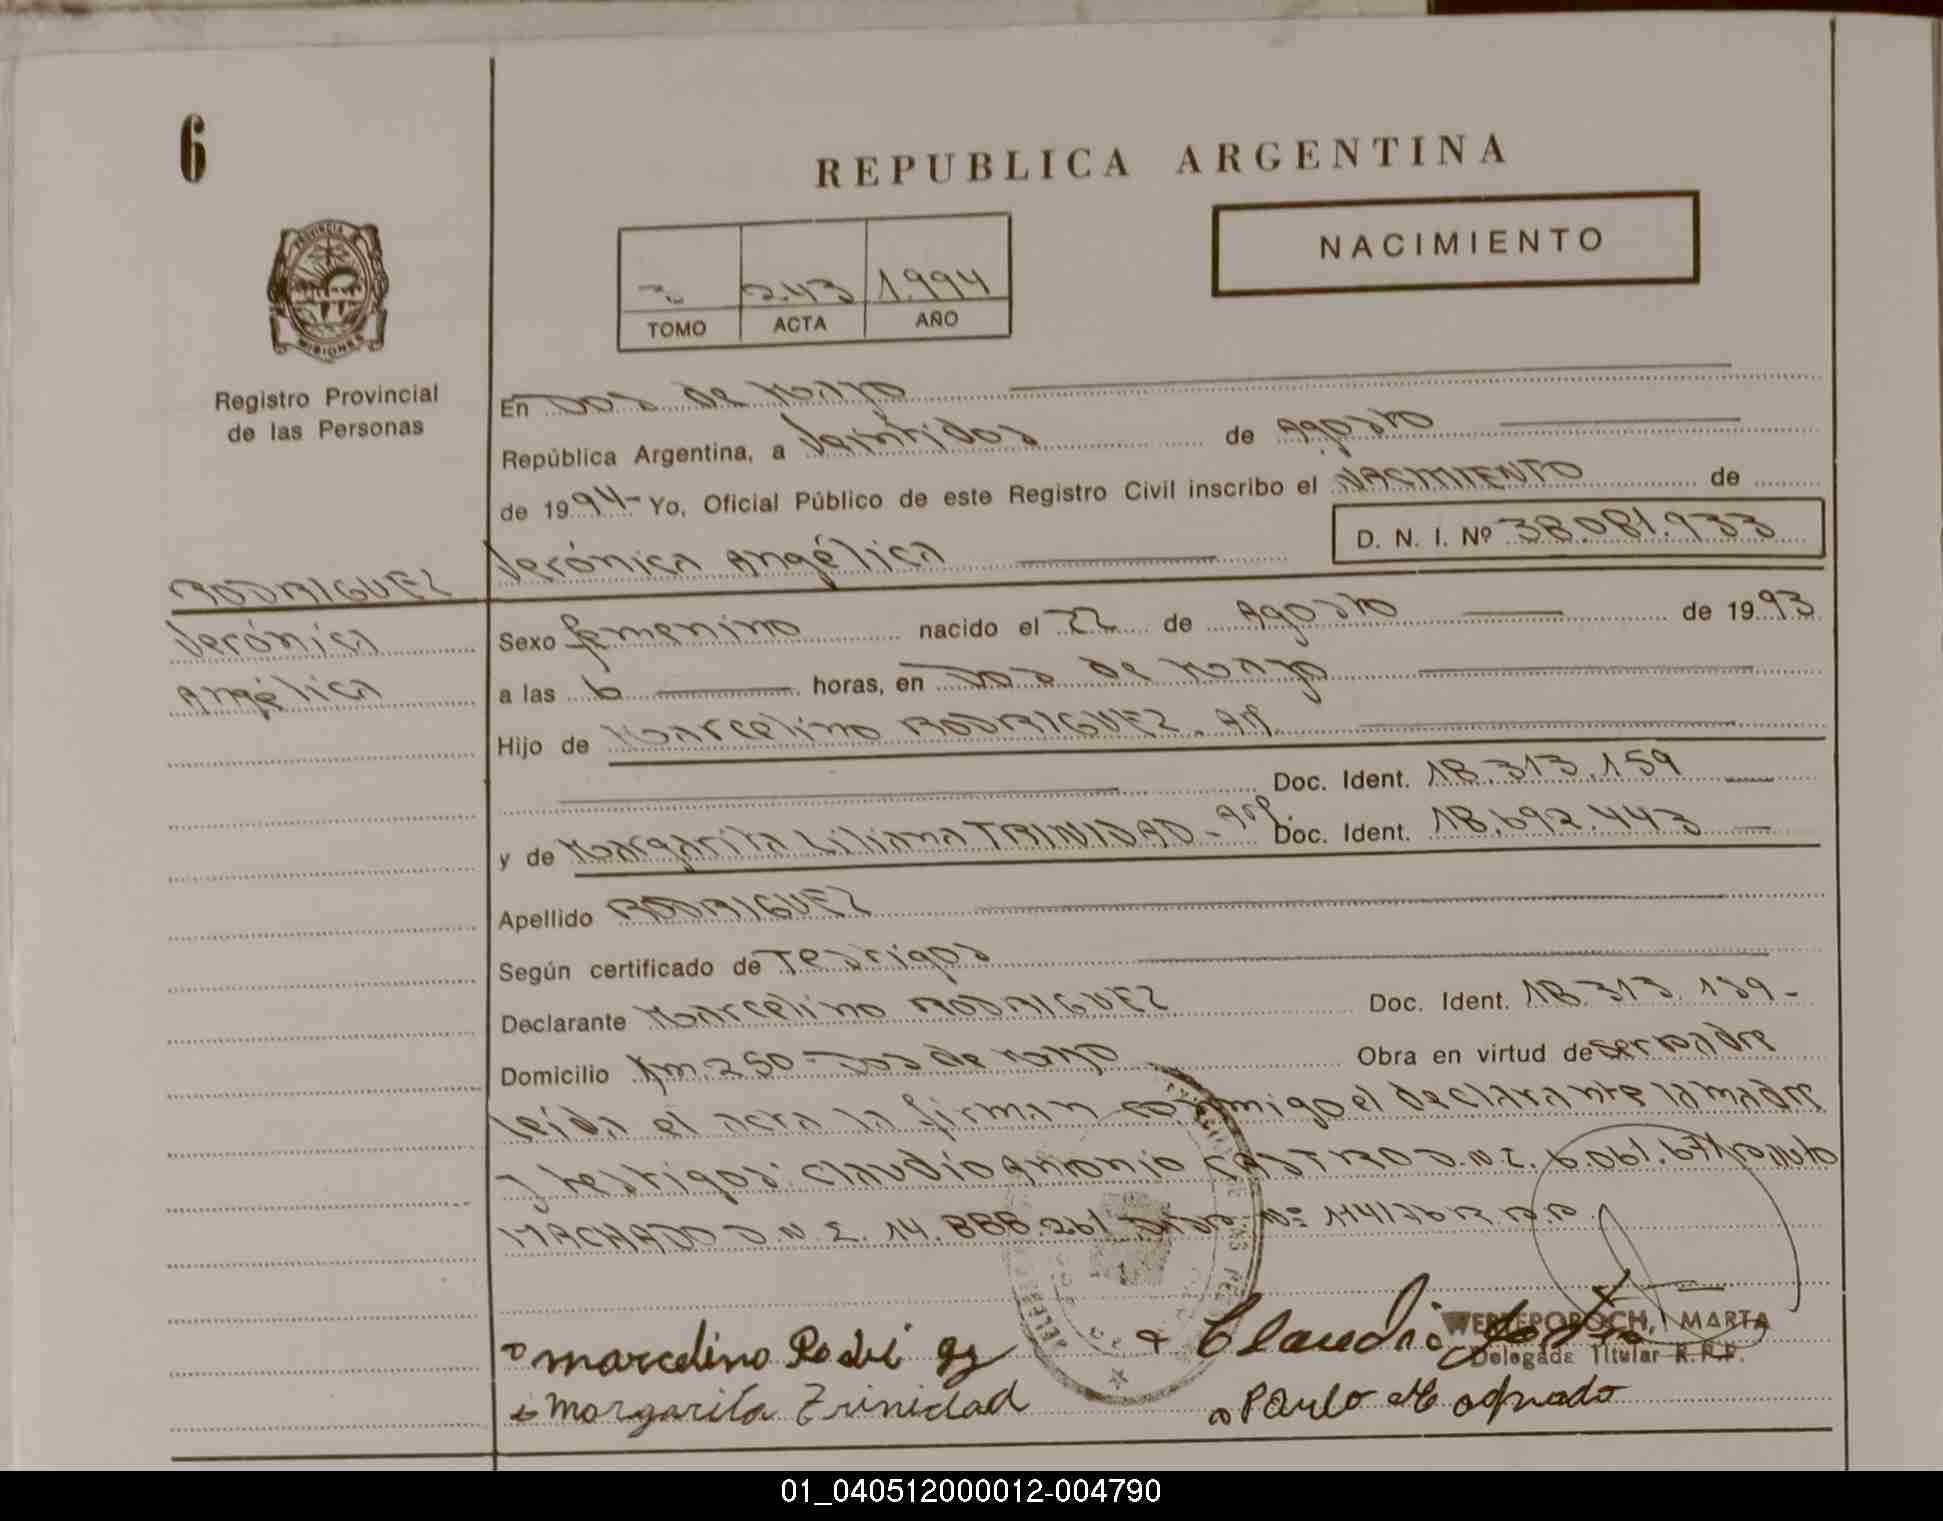 6
REPUBLICA ARGENTINA
NACIMIENTO
243 1.994
TOMO ACTA AÑO
PROVINCIA
MISIONES
Registro Provincial
de las Personas
En Dos de Mayo
República Argentina, a Veintidos de Agosto
de 1994- Yo, Oficial Público de este Registro Civil inscribo el NACIMIENTO de
D. N. I. Nº 38.081.933
Verónica Angélica
RODRIGUEZ
Verónica
Angélica
Sexo femenino nacido el 22 de Agosto de 1993
a las 6 horas, en Dos de Mayo
Hijo de Marcelino RODRIGUEZ. Arg.
Doc. Ident. 18.313.159
y de Margarita Liliana TRINIDAD - Arg. Doc. Ident. 18.692.443
Apellido RODRIGUEZ
Según certificado de Testigos
Declarante Marcelino RODRIGUEZ Doc. Ident. 18.313.159-
Domicilio Km. 250 - Dos de Mayo Obra en virtud de ser padre
Leída el acta la firman conmigo el declarante la madre
y testigos: Claudio Antonio CASTRO D.N.I. 6.061.671 Paulo
MACHADO D.N.I. 14.888.261
WERTEPOROCH, MARTA
Delegada Titular R.P.P.
Marcelino
Claudio
Margarita Trinidad
Paulo Machado
01_040512000012-004790